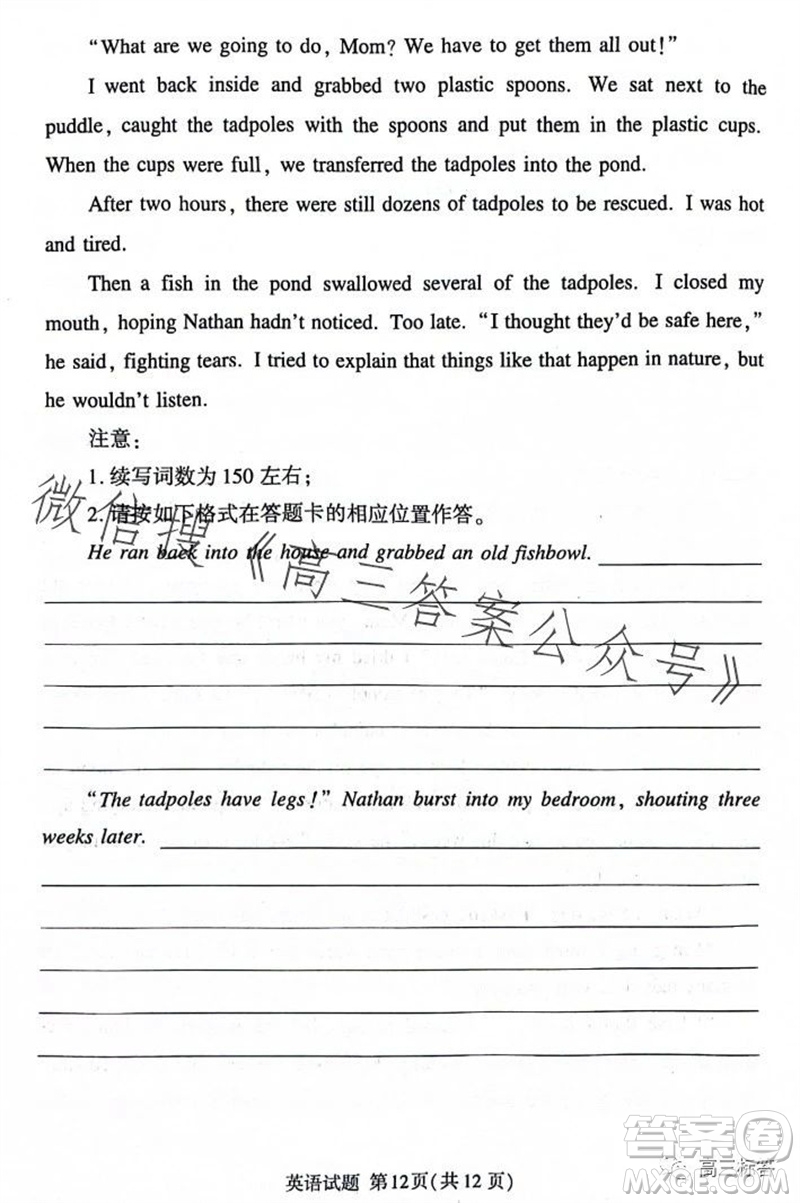 “What are we going to do, Mom? We have to get them all out!”
I went back inside and grabbed two plastic spoons. We sat next to the
puddle, caught the tadpoles with the spoons and put them in the plastic cups.
When the cups were full, we transferred the tadpoles into the pond.
After two hours, there were still dozens of tadpoles to be rescued. I was hot
and tired.
Then a fish in the pond swallowed several of the tadpoles. I closed my
mouth, hoping Nathan hadn’t noticed. Too late. “I thought they’d be safe here,”
he said, fighting tears. I tried to explain that things like that happen in nature, but
he wouldn’t listen.
注意:
1. 续写词数为 150 左右;
2. 请按如下格式在答题卡的相应位置作答。
He ran back into the house and grabbed an old fishbowl.
微信搜《高三答案公众号》
“The tadpoles have legs!” Nathan burst into my bedroom, shouting three
weeks later.
英语试题 第12页(共12页)
答案圈
高三标答
MXQE.COM